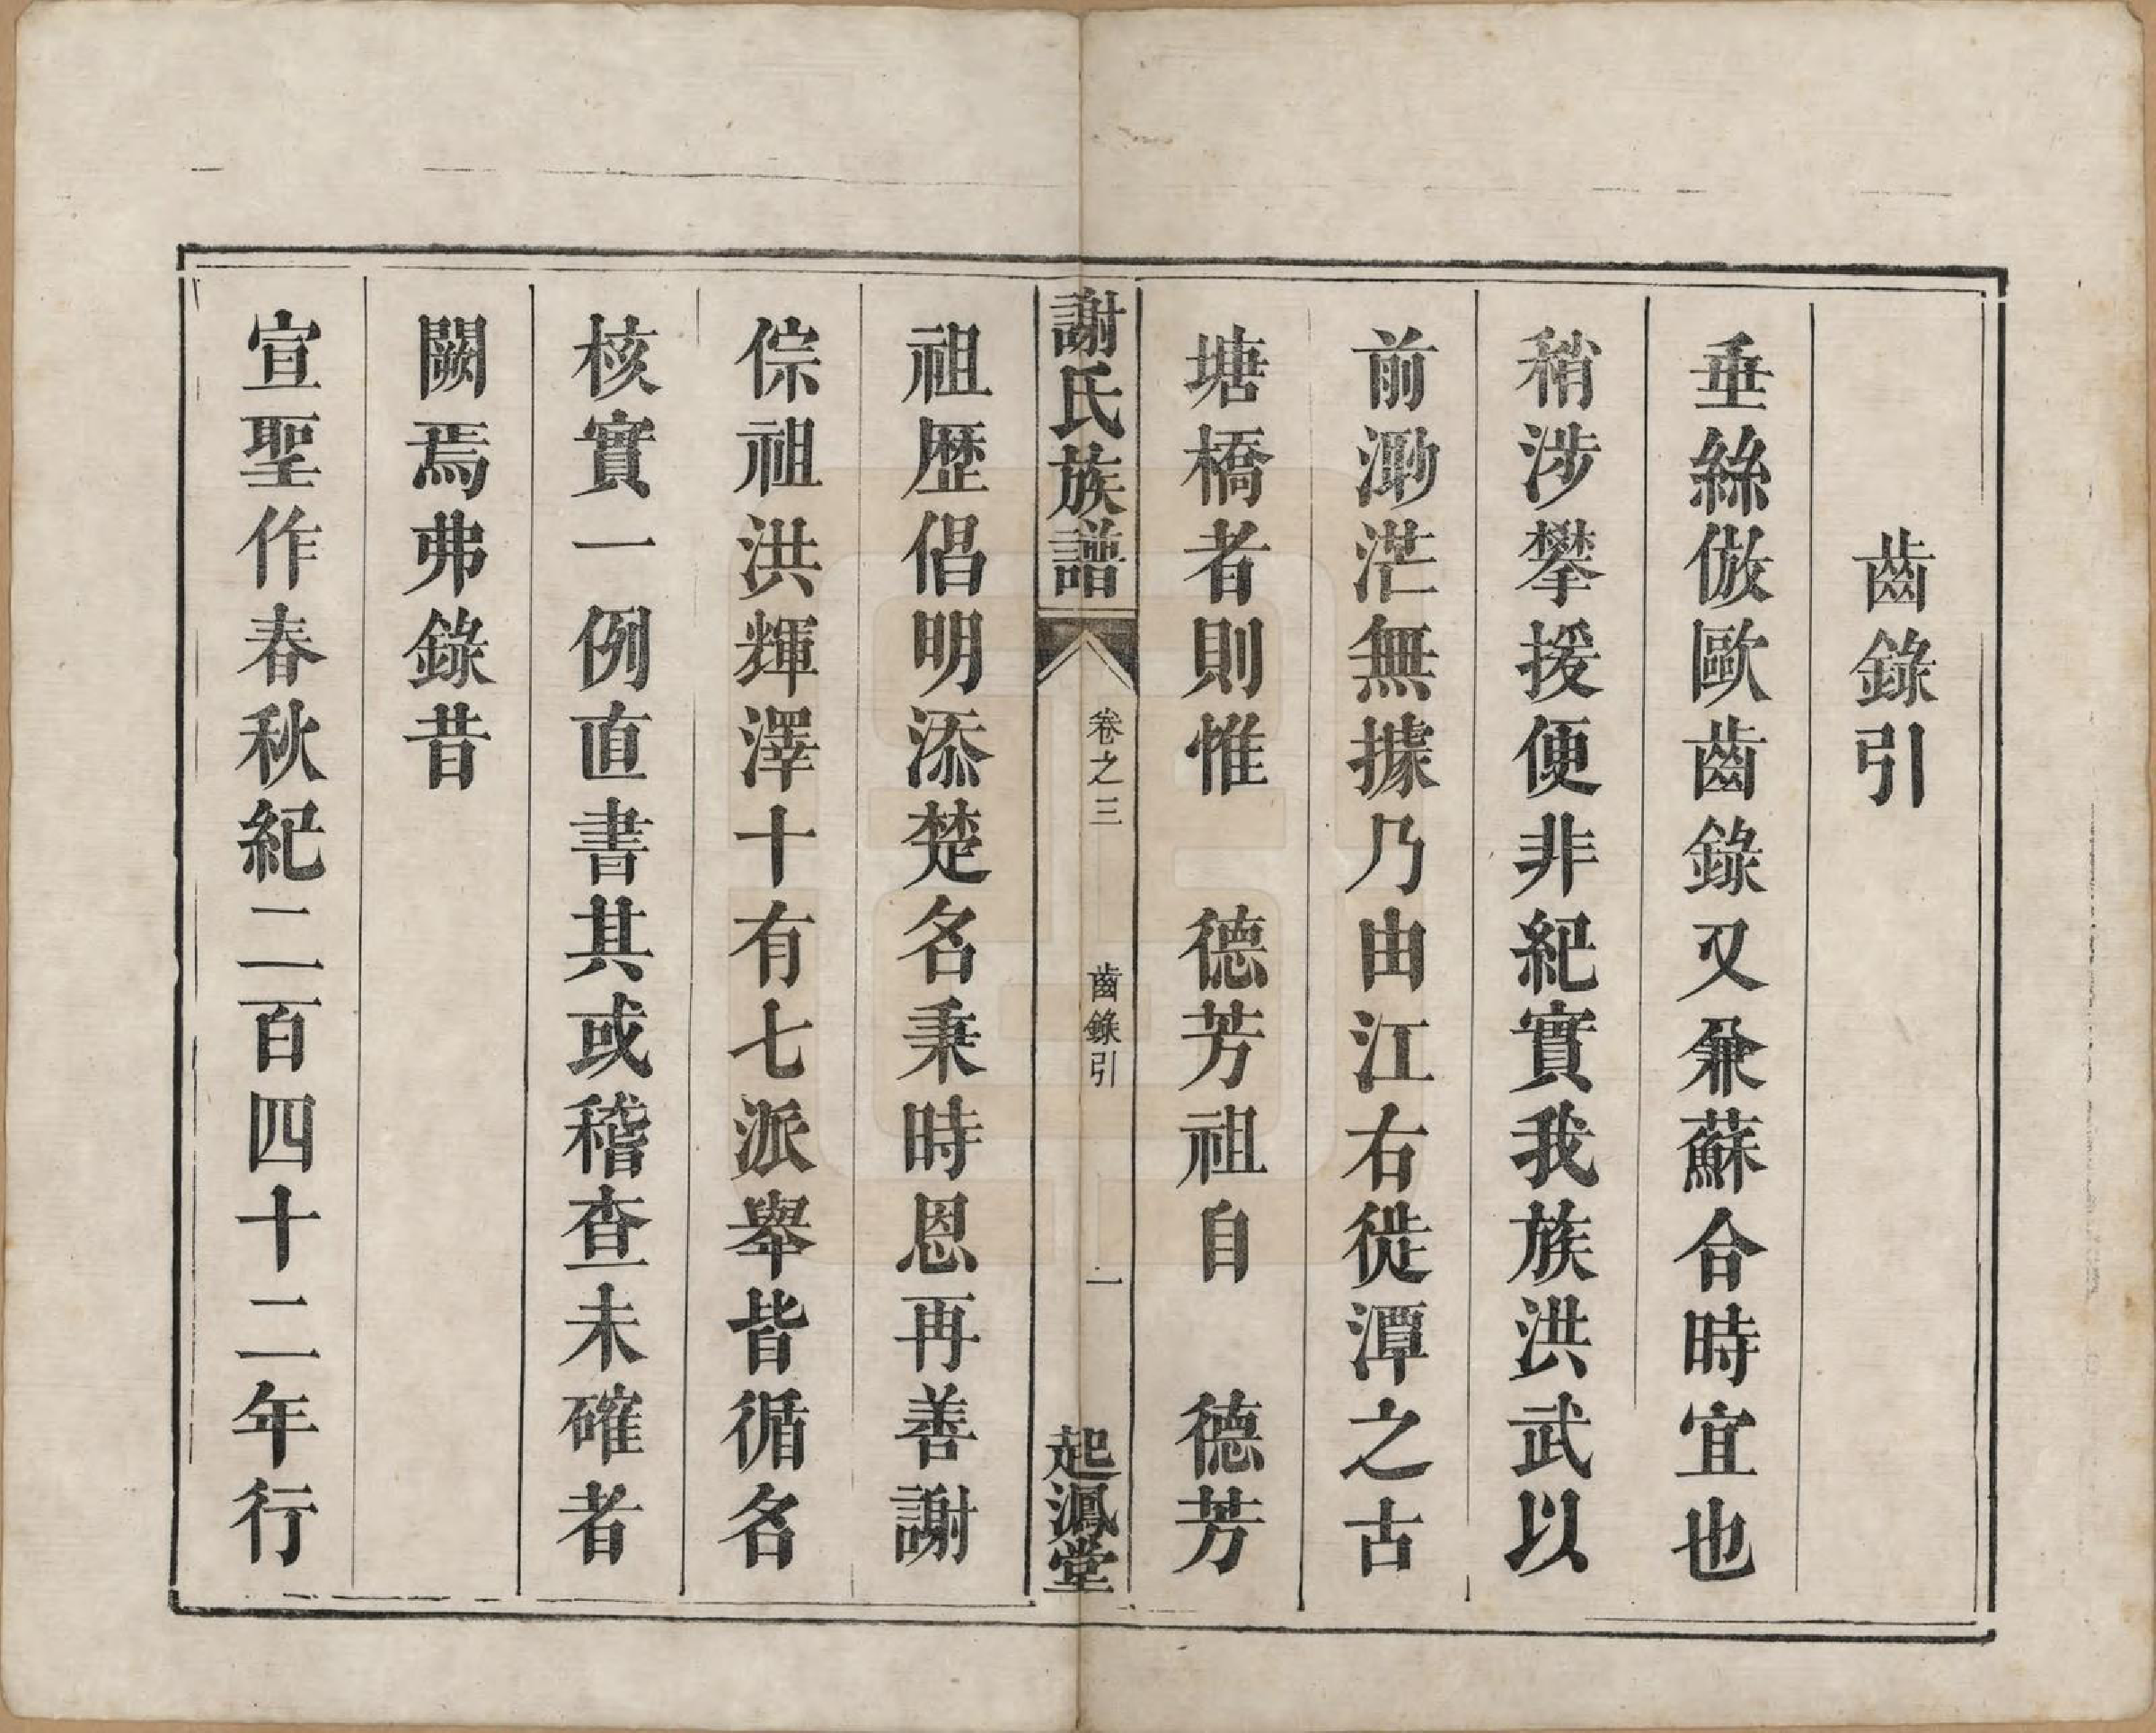 齒錄引
垂絲倣歐齒錄又兼蘇合時宜也
稍涉攀援便非紀實我族洪武以
前渺茫無據乃由江右徙潭之古
塘橋者則惟　德芳祖自　德芳
謝氏族譜　卷之三　齒錄引　一　起鳳堂
祖歷倡明添楚名秉時恩再善謝
倧祖洪輝澤十有七派舉皆循名
核實一例直書其或稽查未確者
闕焉弗錄昔
宣聖作春秋紀二百四十二年行